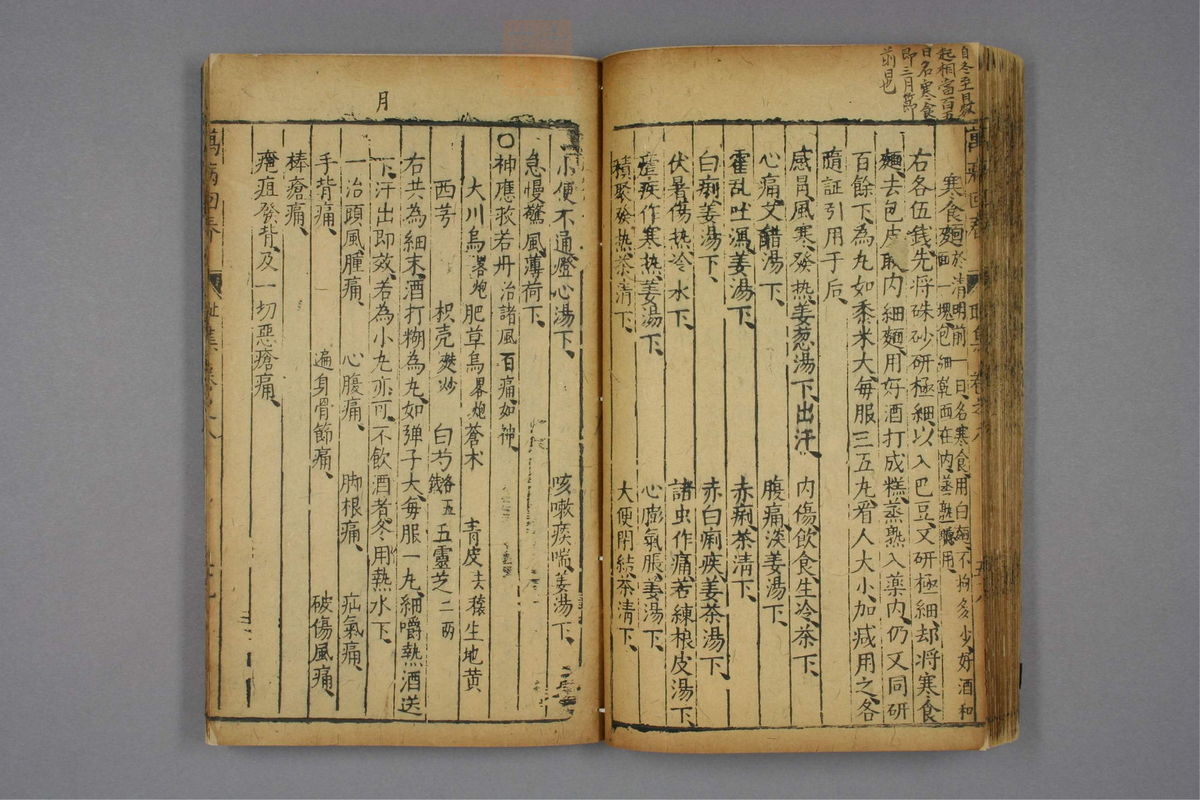 自冬至日數
起相當百五
日名寒食
即三月節
前也
萬病回春
卷之八
寒食麵 於清明前一日名寒食用白麵不拘多少好酒和
一塊包細乾面在內蒸熟
右各伍錢先将硃砂研極細以入巴豆又研極細却将寒食
麵去包皮取内細麵用好酒打成糕蒸熟入薬内仍又同研
百餘下為丸如黍米大毎服三五丸看人大小加减用之各
隨証引用于后
感冐風寒發热姜葱湯下出汗 内傷飲食生冷茶下
心痛艾醋湯下 腹痛淡姜湯下
霍乱吐瀉姜湯下 赤痢茶清下
白痢姜湯下 赤白痢疾姜茶湯下
伏暑傷热冷水下 諸虫作痛苦練根皮湯下
瘧疾作寒热姜湯下 心膨氣脹姜湯下
積聚發热茶清下 大便閉結茶清下
小便不通燈心湯下 咳嗽痰喘姜湯下
急慢驚風薄荷下
月
〇神應救若丹 治諸風百痛如神
大川烏畧炮 肥草烏畧炮 蒼术 青皮去穰 生地黄
西芎 枳壳麸炒 白芍各五錢 五靈芝二两
右共為細末酒打糊為丸如弹子大毎服一丸細嚼熱酒送
下汗出即效若為小丸亦可不飲酒者冬用熱水下
一治頭風腫痛 心腹痛 脚根痛 疝氣痛
手背痛 遍身骨節痛 破傷風痛
棒瘡痛
疮疽發背及一切惡瘡痛
萬病回春
集卷之八